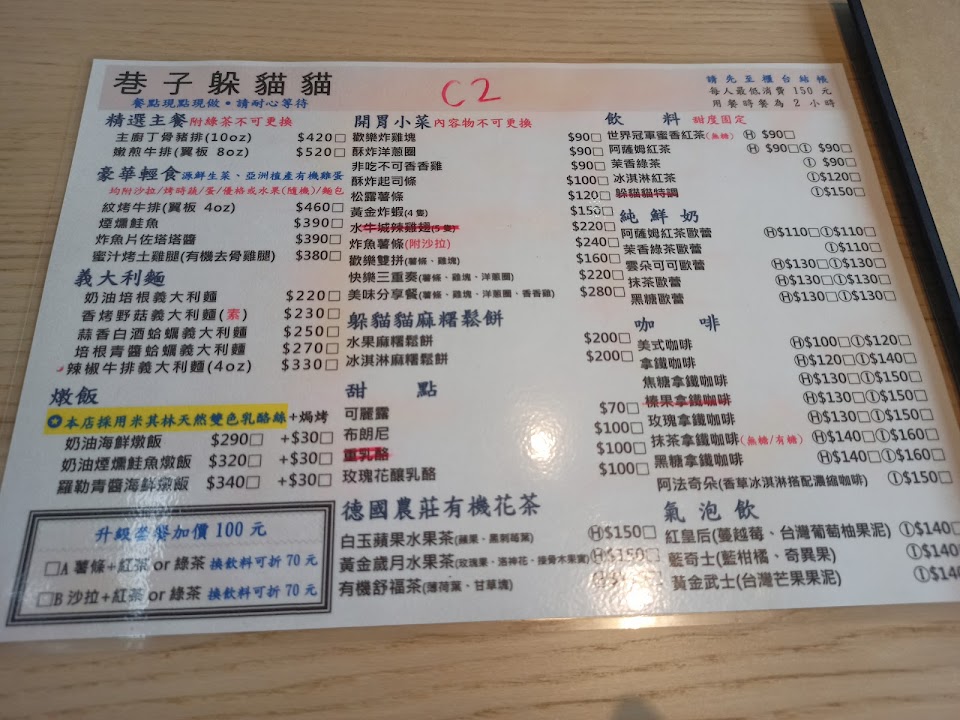 巷子躲貓貓
餐點現點現做•請耐心等待
C2
請先至櫃台結帳
每人最低消費 150 元
用餐時餐為 2 小時
精選主餐附綠茶不可更換
主廚丁骨豬排(10oz) $420□
嫩煎牛排(翼板 8oz) $520□
豪華輕食源鮮生菜、亞洲植產有機雞蛋
均附沙拉/烤時蔬/蛋/優格或水果(隨機)/麵包
紋烤牛排(翼板 4oz) $460□
煙燻鮭魚 $390□
炸魚片佐塔塔醬 $390□
蜜汁烤土雞腿(有機去骨雞腿) $380□
義大利麵
奶油培根義大利麵 $220□
香烤野菇義大利麵(素) $230□
蒜香白酒蛤蠣義大利麵 $250□
培根青醬蛤蠣義大利麵 $270□
辣椒牛排義大利麵(4oz) $330□
燉飯
✪本店採用米其林天然雙色乳酪絲+焗烤
奶油海鮮燉飯 $290□ +$30□
奶油煙燻鮭魚燉飯 $320□ +$30□
羅勒青醬海鮮燉飯 $340□ +$30□
升級套餐加價 100 元
□A 薯條+紅茶 or 綠茶 換飲料可折 70 元
□B 沙拉+紅茶 or 綠茶 換飲料可折 70 元
開胃小菜內容物不可更換
歡樂炸雞塊 $90□
酥炸洋蔥圈 $90□
非吃不可香香雞 $90□
酥炸起司條 $100□
松露薯條 $120□
黃金炸蝦(4 隻) $150□
水牛城辣雞翅(5 隻) $220□
炸魚薯條(附沙拉) $240□
歡樂雙拼(薯條、雞塊) $160□
快樂三重奏(薯條、雞塊、洋蔥圈) $220□
美味分享餐(薯條、雞塊、洋蔥圈、香香雞) $280□
躲貓貓麻糬鬆餅
水果麻糬鬆餅 $200□
冰淇淋麻糬鬆餅 $200□
甜 點
可麗露 $70□
布朗尼 $100□
重乳酪 $100□
玫瑰花釀乳酪 $100□
德國農莊有機花茶
白玉蘋果水果茶(蘋果、黑刺莓葉) Ⓗ$150□
黃金歲月水果茶(玫瑰果、洛神花、接骨木果實) Ⓗ$150□
有機舒福茶(薄荷葉、甘草塊)
飲 料 甜度固定
世界冠軍蜜香紅茶(無糖) Ⓗ $90□
阿薩姆紅茶 Ⓗ $90□Ⓘ $90□
茉香綠茶 Ⓘ $90□
冰淇淋紅茶 Ⓘ$120□
躲貓貓特調 Ⓘ$150□
純鮮奶
阿薩姆紅茶歐蕾 Ⓗ$110□Ⓘ$110□
茉香綠茶歐蕾 Ⓘ$110□
雲朵可可歐蕾 Ⓗ$130□Ⓘ$130□
抹茶歐蕾 Ⓗ$130□Ⓘ$130□
黑糖歐蕾 Ⓗ$130□Ⓘ$130□
咖 啡
美式咖啡 Ⓗ$100□Ⓘ$120□
拿鐵咖啡 Ⓗ$120□Ⓘ$140□
焦糖拿鐵咖啡 Ⓗ$130□Ⓘ$150□
榛果拿鐵咖啡 Ⓗ$130□Ⓘ$150□
玫瑰拿鐵咖啡 Ⓗ$130□Ⓘ$150□
抹茶拿鐵咖啡(無糖/有糖) Ⓗ$140□Ⓘ$160□
黑糖拿鐵咖啡 Ⓗ$140□Ⓘ$160□
阿法奇朵(香草冰淇淋搭配濃縮咖啡) Ⓘ$150□
氣泡飲
紅皇后(蔓越莓、台灣葡萄柚果泥) Ⓘ$140□
藍奇士(藍柑橘、奇異果) Ⓘ$140□
黃金武士(台灣芒果果泥) Ⓘ$140